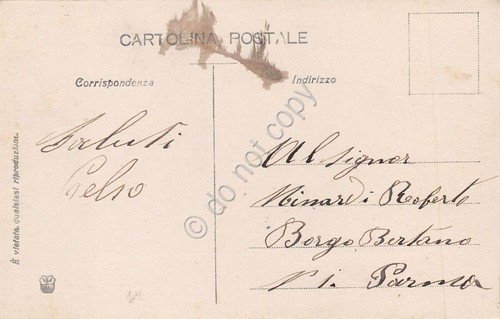 CARTOLINA POSTALE
Corrispondenza
Indirizzo
Saluti
Celso
Al Signor
Minardi Roberto
Borgo Bertano
Parma
È vietata qualsiasi riproduzione.
© do not copy